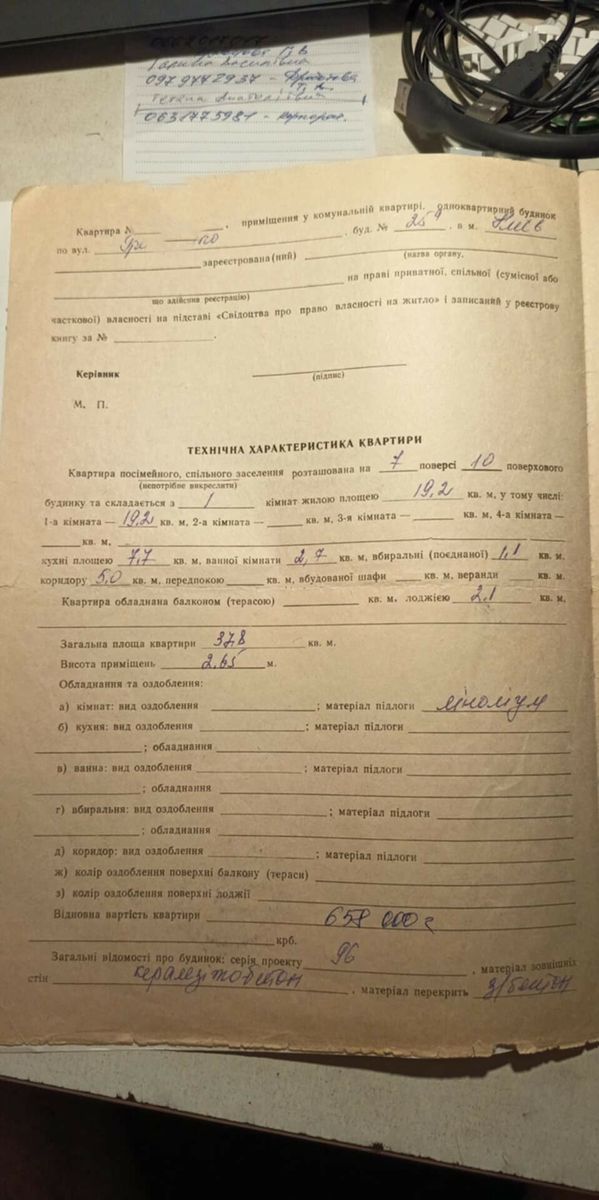 097 9442937 -
Тетяна Анатоліївна
0631775981 -
Квартира № , приміщення у комунальній квартирі, одноквартирний будинок
по вул. , буд. № 25 , в м. Київ
зареєстрована(ний) (назва органу,
на праві приватної, спільної (сумісної або
що здійснює реєстрацію)
часткової) власності на підставі «Свідоцтва про право власності на житло» і записаний у реєстрову
книгу за № .
Керівник
(підпис)
М. П.
ТЕХНІЧНА ХАРАКТЕРИСТИКА КВАРТИРИ
Квартира посімейного, спільного заселення розташована на 7 поверсі 10 поверхового
(непотрібне викреслити)
будинку та складається з 1 кімнат жилою площею 19,2 кв. м, у тому числі:
1-а кімната — 19,2 кв. м, 2-а кімната — кв. м, 3-я кімната — кв. м, 4-а кімната —
кв. м,
кухні площею 7,7 кв. м, ванної кімнати 2,7 кв. м, вбиральні (поєднаної) 1,1 кв. м.
коридору 5,0 кв. м, передпокою кв. м, вбудованої шафи кв. м, веранди кв. м.
Квартира обладнана балконом (терасою) кв. м. лоджією 2,1 кв. м,
Загальна площа квартири 37,8 кв. м.
Висота приміщень 2,65 м.
Обладнання та оздоблення:
а) кімнат: вид оздоблення ; матеріал підлоги лінолiум
б) кухня: вид оздоблення ; матеріал підлоги
; обладнання
в) ванна: вид оздоблення ; матеріал підлоги
; обладнання
г) вбиральня: вид оздоблення ; матеріал підлоги
; обладнання
д) коридор: вид оздоблення ; матеріал підлоги
ж) колір оздоблення поверхні балкону (тераси)
з) колір оздоблення поверхні лоджії
Відновна вартість квартири 658 000
крб.
Загальні відомості про будинок: серія проекту 96 , матеріал зовнішніх
стін керамзітобетон , матеріал перекрить з/бетон